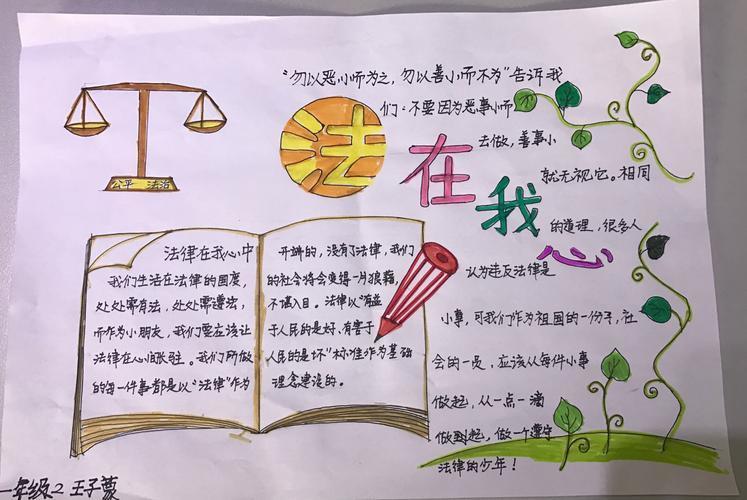 公平 法治
法在我心
"勿以恶小师为之，勿以善小而不为"告诉我
们：不要因为恶事小师
去做，善事小
就无视它。相同
的道理，很多人
认为违反法律是
小事，可我们作为祖国的一份子，社
会的一员，应该从每件小事
做起，从一点一滴
做到起，做一个遵守
法律的少年！
法律在我心中
我们生活在法律的国度，
处处需有法，处处需遵法，
而作为小朋友，我们要应该让
法律在心间张驻。我们所做
的每一件事都是以"法律"作为
开端的，没有了法律，我们
的社会将会变得一片狼藉，
不堪入目。法律以"有益
于人民的是好，有害于
人民的是坏"标准作为基础
理念建设的。
一年级2 王子蒙